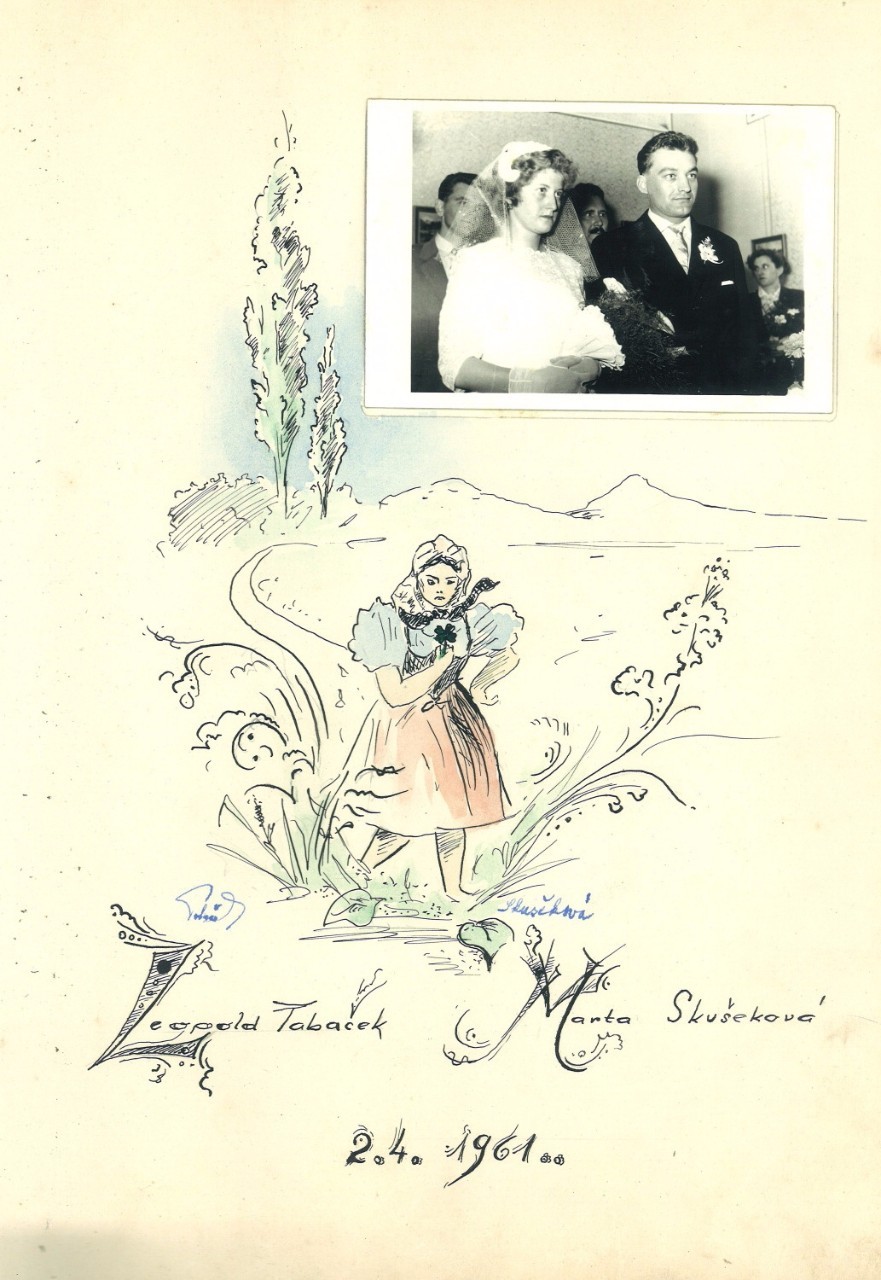 Skušeková
Leopold Tabaček Marta Skušeková
2.4. 1961..